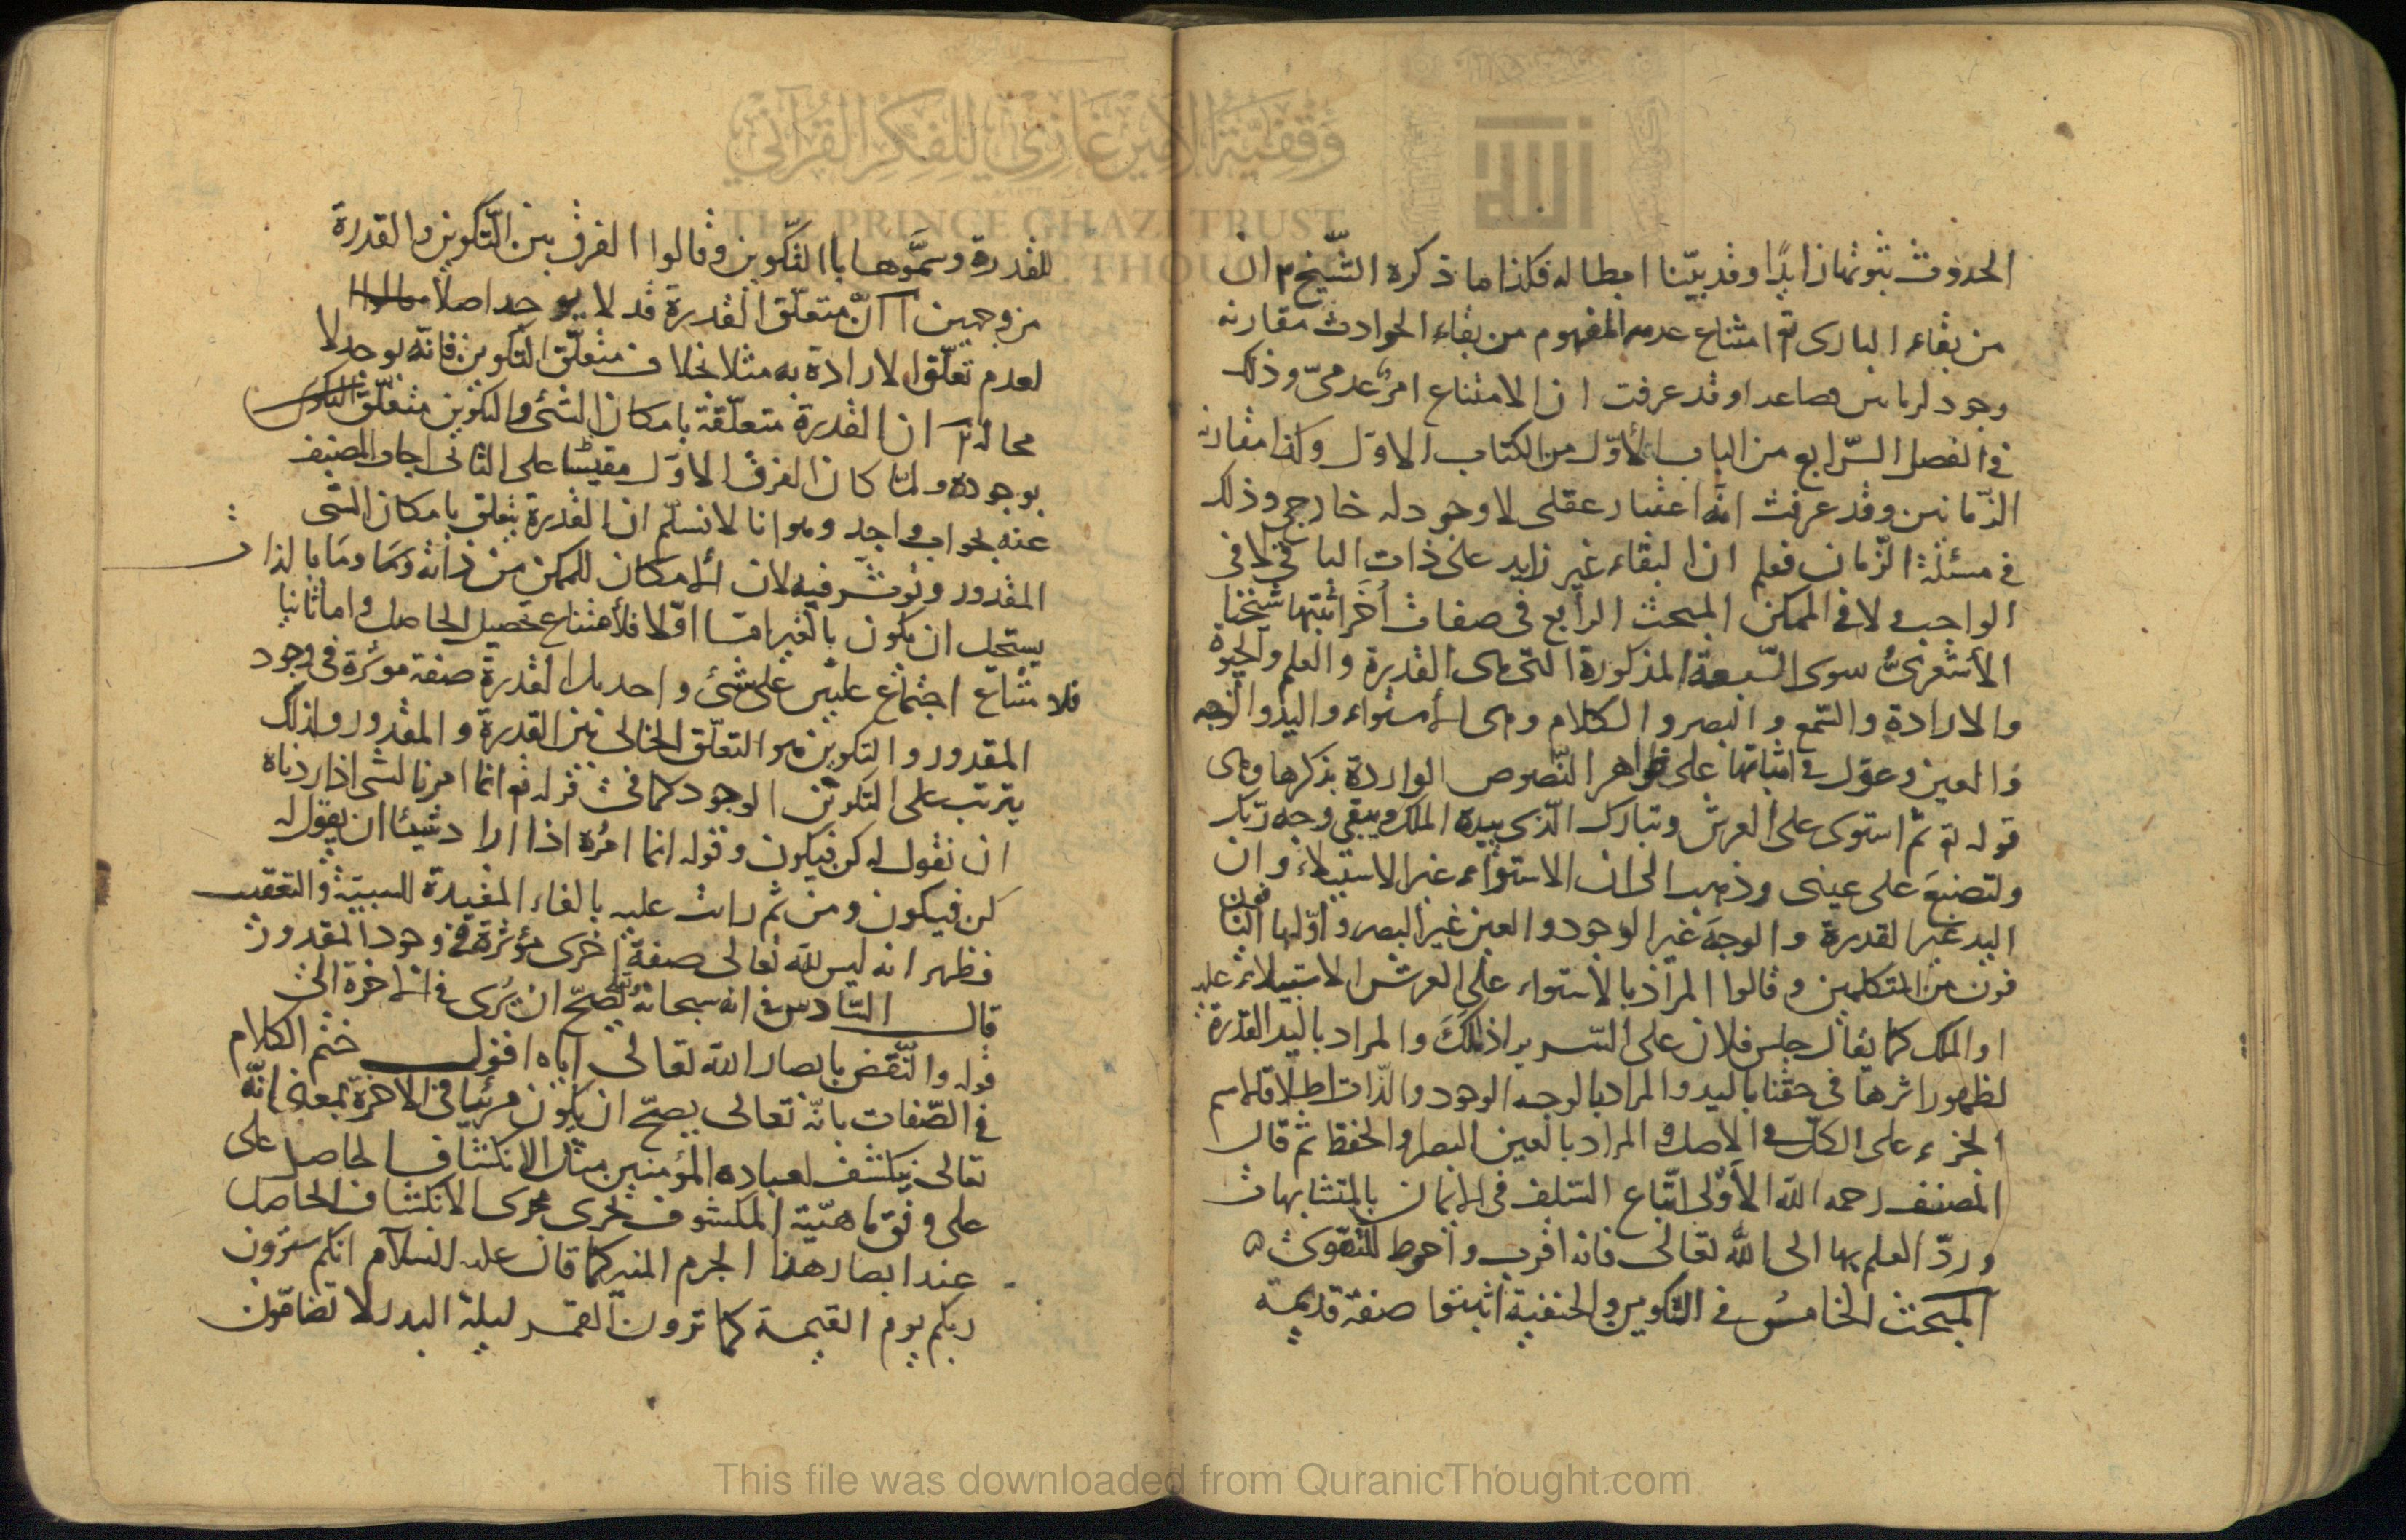 وقفية الأمير غازي للفكر القرآني
THE PRINCE GHAZI TRUST
الحدوث ثبوتها زايدا وقد بيّنا ابطاله فكذا ما ذكره الشيخ م ان
من بقاء البارى تع امتناع عدمه المفهوم من بقاء الحوادث مقارنه
وجود لزمانين فصاعدا وقد عرفت ان الامتناع امر عدمىّ وذلك
في الفصل الرابع من الباب الأوّل من الكتاب الاوّل وكذا مقارنه
الزمانين وقد عرفت انه اعتبار عقلى لا وجود له خارجى وذلك
في مسئلة الزمان فعلم ان البقاء غير زايد على ذات الباقى لا فى
الواجب ولا في الممكن المبحث الرابع فى صفات أخر اثبتها شيخنا
الأشعرىّ سوى السّبعة المذكورة التى هى القدرة والعلم والحيوة
والارادة والسّمع والبصر والكلام وهى الأستواء واليد والوجه
والعين وعوّل في اثباتها على ظواهر النّصوص الواردة بذكرها وهى
قوله تع ثم استوى على العرش وتبارك الّذى بيده الملك ويبقى وجه ربّك
ولتصنع على عينى وذهب الى ان الاستواء غير الاستيلاء وان
اليد غير القدرة والوجه غير الوجود والعين غير البصر و اوّلها الباقون
من المتكلمين وقالوا المراد بالاستواء على العرش الاستيلاء عليه
او الملك كما يقال جلس فلان على السرير اذا ملك والمراد باليد القدرة
لظهور اثرها فى حقّنا باليد والمراد بالوجه الوجود والذّات اطلاقا لاسم
الجزء على الكلّ في الاصل والمراد بالعين البصر او الحفظ ثم قال
المصنف رحمه الله الأولى اتّباع السّلف فى الايمان بالمتشابهات
وردّ العلم بها الى الله تعالى فانه اقرب واحوط للتقوى
المبحث الخامس في التكوين والحنفية اثبتوا صفة قديمة
للقدرة وسمّوها باالتّكوين وقالوا الفرق بين التّكوين والقدرة
من وجهين ا انّ متعلّق القدرة قد لا يوجد اصلا
لعدم تعلّق الارادة به مثلا بخلاف متعلّق التكوين فانّه يوجد لا
محالة ان القدرة متعلّقة بامكان الشئ والتكوين متعلّق
بوجوده ولمّا كان الفرق الاوّل على الثانى اجاب المصنف
عنه بجواب واحد وهو انا لا نسلّم ان القدرة يتعلق بامكان الشى
المقدور وتوثّر فيه لان الامكان للممكن من ذاته وما بالذات
يستحيل ان يكون بالغير امّا اوّلا فلامتناع تحصيل الحاصل واما ثانيا
فلامتناع اجتماع علّتين على شئ واحد بل القدرة صفة موثرة فى وجود
المقدور والتكوين هو التعلّق بين القدرة والمقدور ولذلك
يترتب على التكوين الوجود كما فى قوله تع انما امرنا لشى اذا اردناه
ان نقول له كن فيكون وقوله انما امره اذا اراد شيئا ان يقول له
كن فيكون ومن ثم رتب عليه بالفاء المفيدة للسببيّة والتعقيب
فظهر انه ليس لله تعالى صفة اخرى مؤثرة في وجود المقدور
قال السّادس في انه سبحانه يصحّ ان يُرى في الاخرة الى
قوله والنّقض بابصار الله تعالى اياه اقول ختم الكلام
في الصّفات بانّه تعالى يصحّ ان يكون مرئيا فى الاخرة بمعنى انّه
تعالى ينكشف لعباده المؤمنين مثل الانكشاف الحاصل على
على وفق ماهيّة المكشوف يجرى مجرى الانكشاف الحاصل
عند ابصار هذا الجرم المنير كما قال عليه السلام انكم سترون
ربكم يوم القيمة كما ترون القمر ليلة البدر لا تضامّون
This file was downloaded from QuranicThought.com